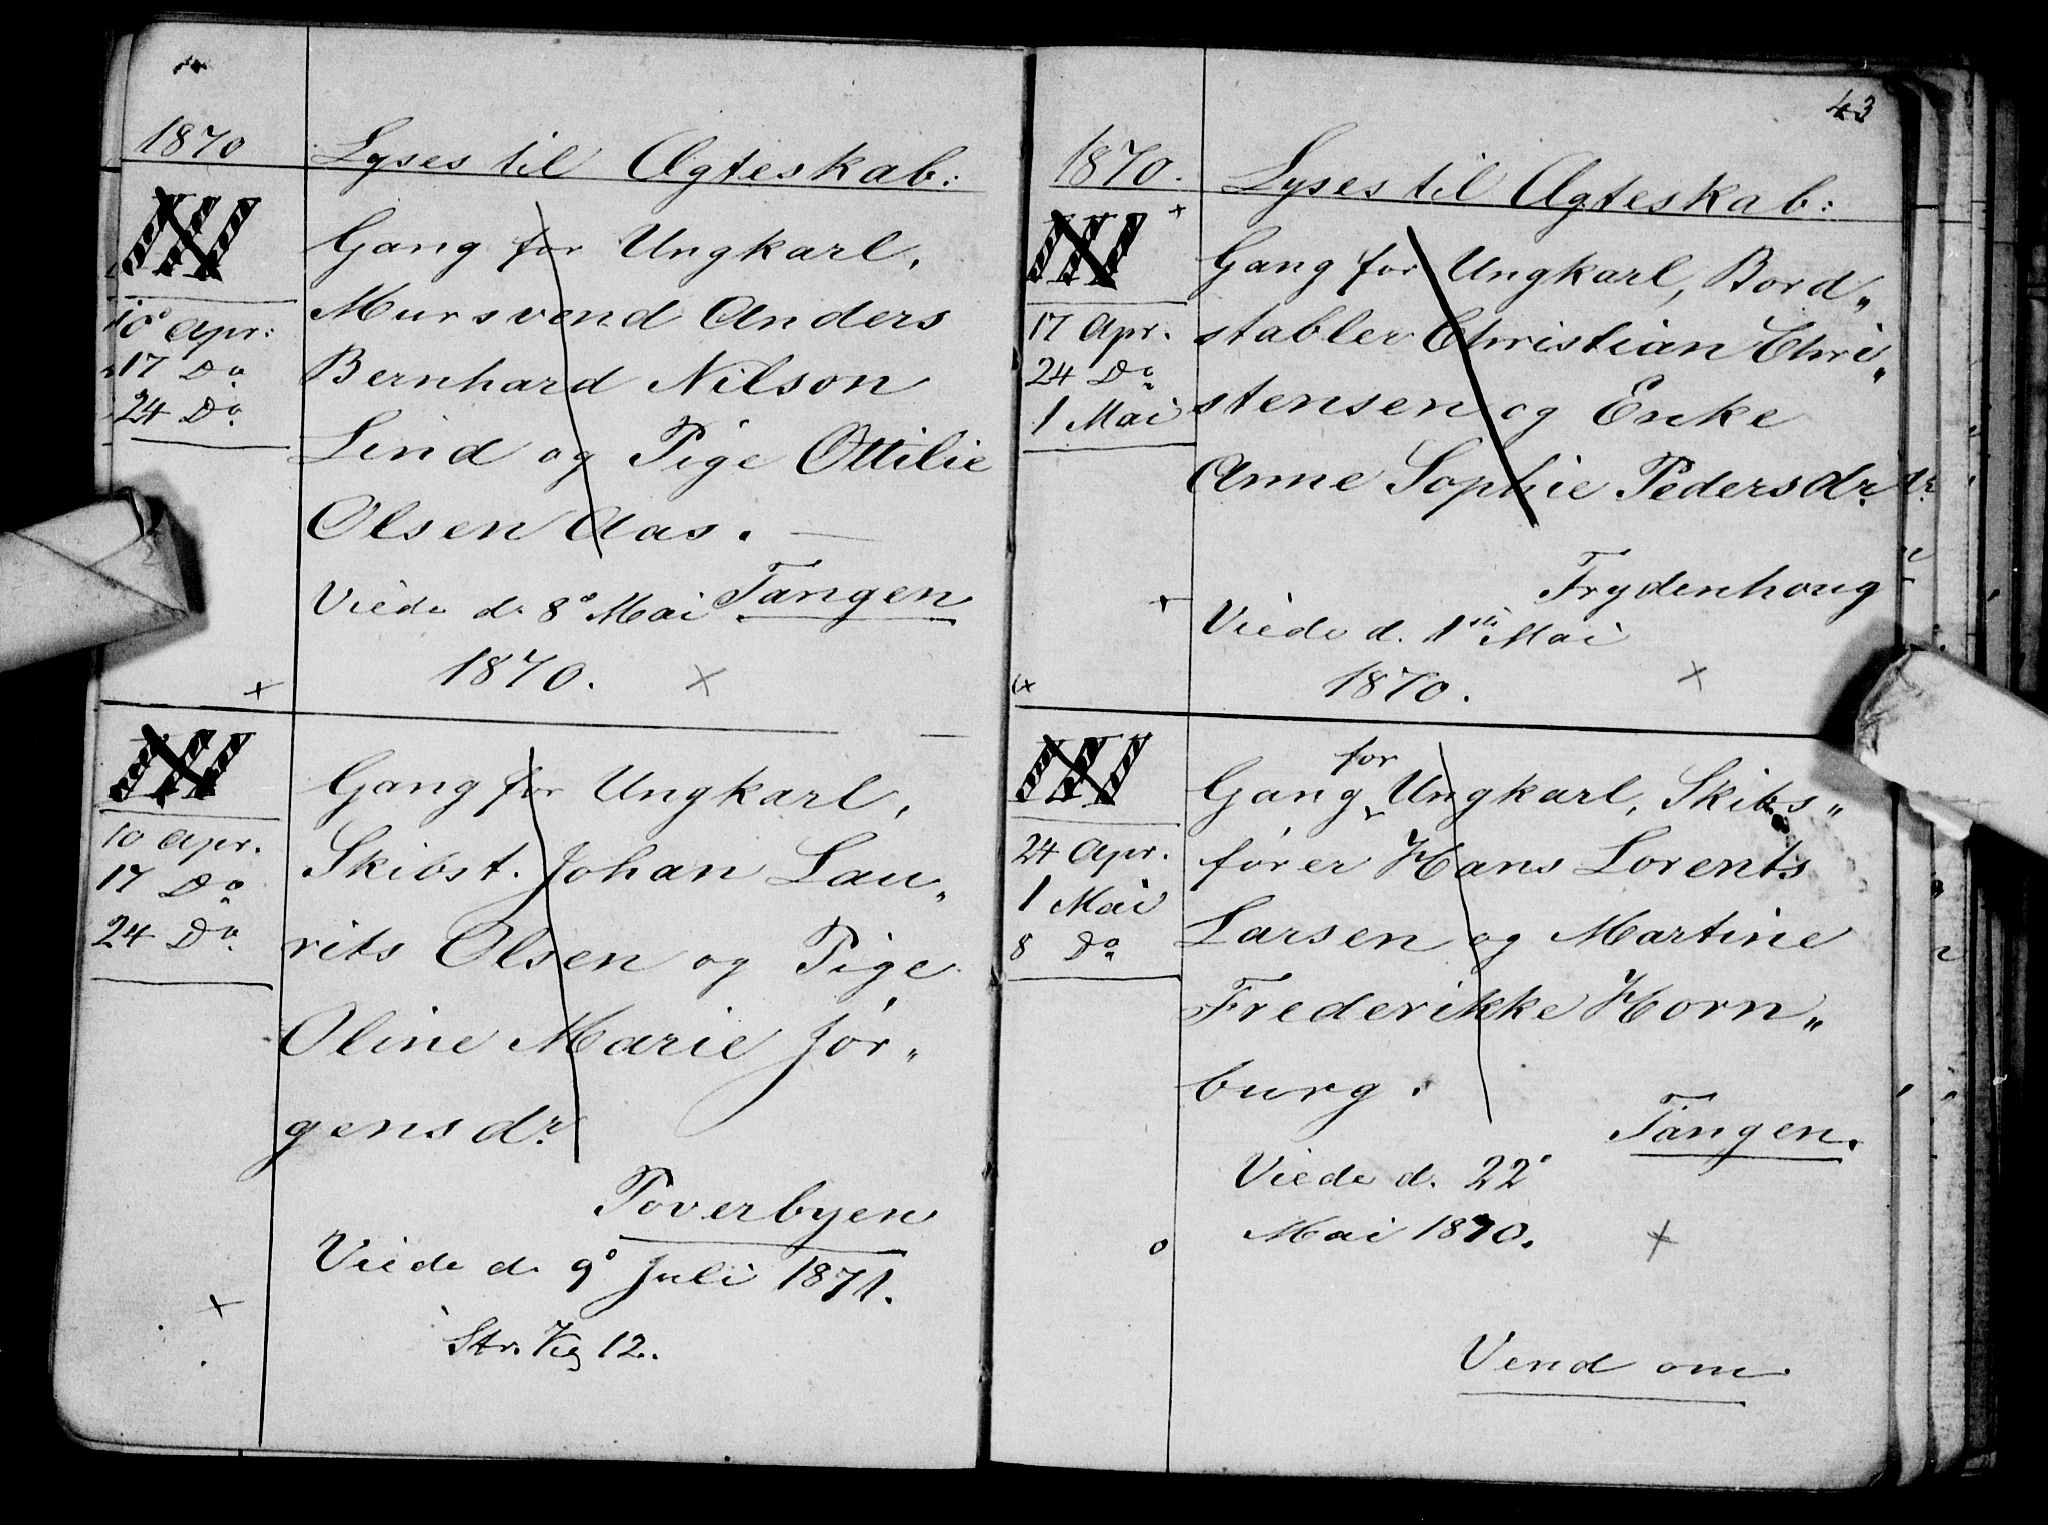 1870
Lyses til Ægteskab:
III
Gang for Ungkarl,
Mursvend Anders
Bernhard Nilson
Lind og Pige Ottilie
Olsen Aas.
10 Apr:
17 Do
24 Do
Tangen
Viede d. 8 Mai
1870.
III
Gang for Ungkarl,
Skibst. Johan Lau„
rits Olsen og Pige
Oline Marie Jör„
gensdr.
10 Apr.
17 Do
24 Do
Toverbyen
Viede d. 9 Juli 1871.
Str. 12.
43
1870.
Lyses til Ægteskab:
III
Gang for Ungkarl, Bord„
stabler Christian Chri„
stensen og Enke
Anne Sophie Pedersdr.
17 Apr.
24 Do
1 Mai
Frydenhoug
Viede d. 1ste Mai
1870.
III
Gang for Ungkarl, Skibs„
förer Hans Lorents
Larsen og Martine
Frederikke Horn„
burg.
24 Apr.
1 Mai
8 Do
Tangen.
Viede d. 22
Mai 1870.
Vend om